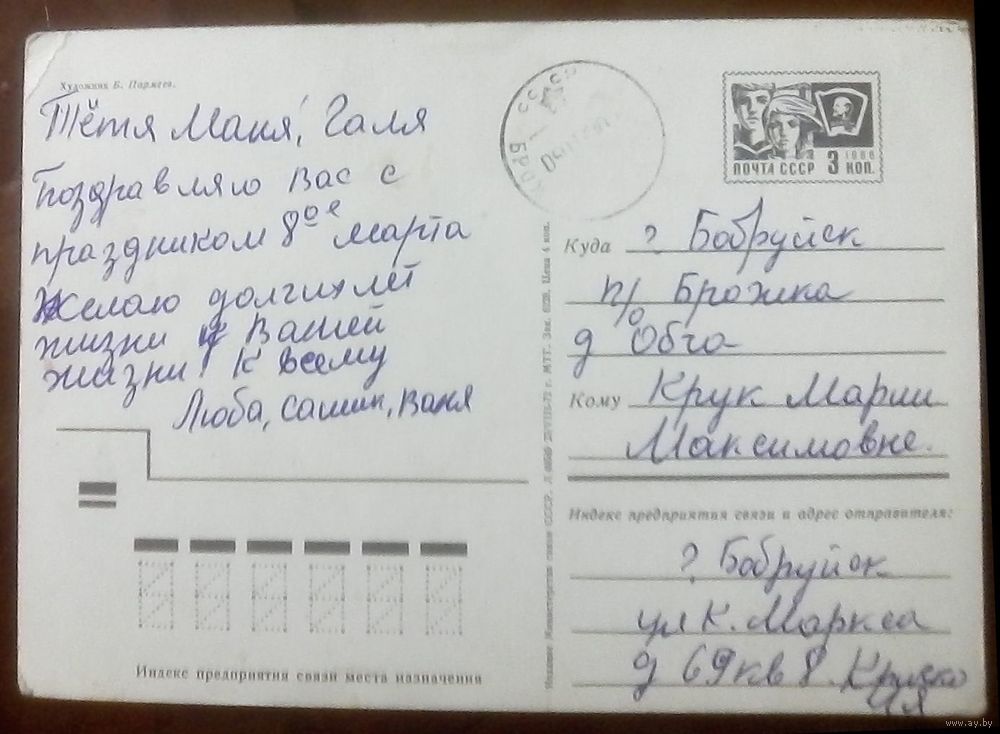 Художник Б. Пармеев.
Тётя Маня, Галя
Поздравляю Вас с
праздником 8ое марта
Желаю долгих лет
жизни и Вашей
жизни! К всему
Люба, Сашик, Ваня
СССР
ПОЧТА СССР 3 КОП.
1966
Куда г Бобруйск
п/о Брожка
д Обча
Кому Крук Марии
Максимовне.
Индекс предприятия связи и адрес отправителя:
г. Бобруйск
ул К. Маркса
д 69 кв 8.
Индекс предприятия связи места назначения
Министерство связи СССР. МТГ. Зак. Цена 4 коп.
www.ay.by